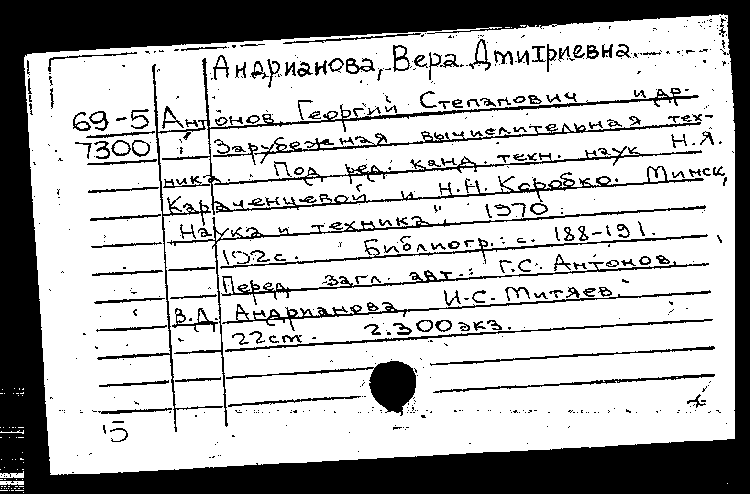 Андрианова, Вера Дмитриевна
69-5 Антонов, Георгий Степанович и др.
7300 Зарубежная вычислительная тех-
ника. Под ред. канд. техн. наук Н.Я.
Караченцевой и Н.Н. Коробко. Минск,
"Наука и техника", 1970.
192с. Библиогр.: с. 188-191.
Перед загл. авт.: Г.С. Антонов,
В.Д. Андрианова, И.С. Митяев.
22см. 2.300 экз.
5